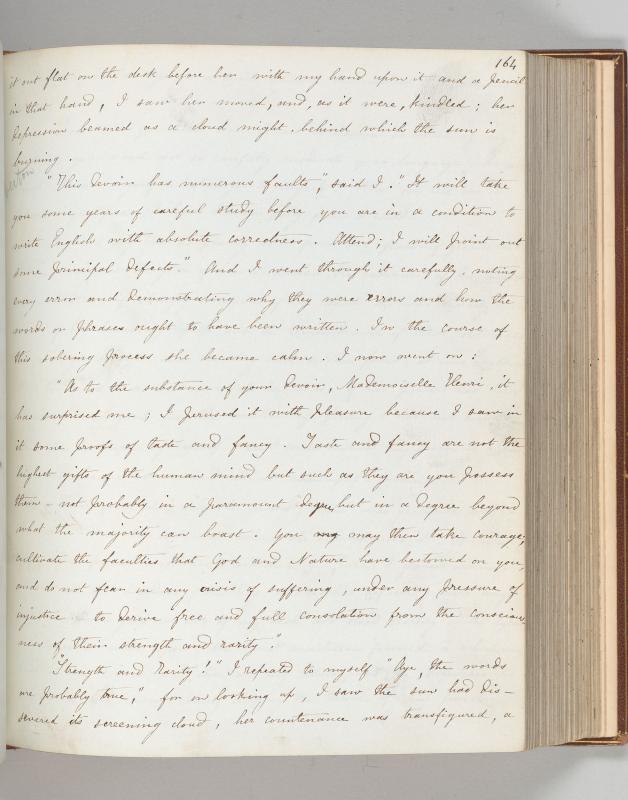 164
it out flat on the desk before her with my hand upon it and a pencil
in that hand, I saw her moved, and, as it were, kindled; her
depression beamed as a cloud might behind which the sun is
burning.
"This devoir has numerous faults", said I. "It will take
you some years of careful study before you are in a condition to
write English with absolute correctness. Attend; I will point out
some principal defects." And I went through it carefully, noting
every error and demonstrating why they were errors and how the
words or phrases ought to have been written. In the course of
this sobering process she became calm. I now went on:
"As to the substance of your devoir, Mademoiselle Henri, it
has surprised me; I perused it with pleasure because I saw in
it some proofs of taste and fancy. Taste and fancy are not the
highest gifts of the human mind but such as they are you possess
them - not probably in a paramount degree, but in a degree beyond
what the majority can boast. You may then take courage;
cultivate the faculties that God and Nature have bestowed on you,
and do not fear in any crisis of suffering, under any pressure of
injustice to derive free and full consolation from the conscious-
ness of their strength and rarity".
"Strength and Rarity!" I repeated to myself "Aye, the words
are probably true", for on looking up, I saw the sun had dis-
severed its screening cloud, her countenance was transfigured, a